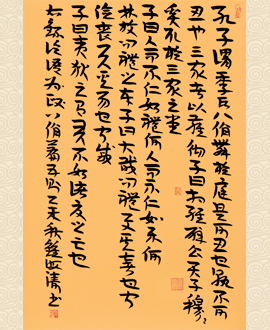 孔子謂季氏八佾舞於庭是可忍也孰不可
忍也三家者以雍徹子曰相維辟公天子穆穆
奚取於三家之堂
子曰人而不仁如禮何人而不仁如樂何
林放問禮之本子曰大哉問禮與其奢也寧
儉喪與其易也寧戚
子曰夷狄之有君不如諸夏之亡也
右錄論語為政八佾篇五則乙未秋書